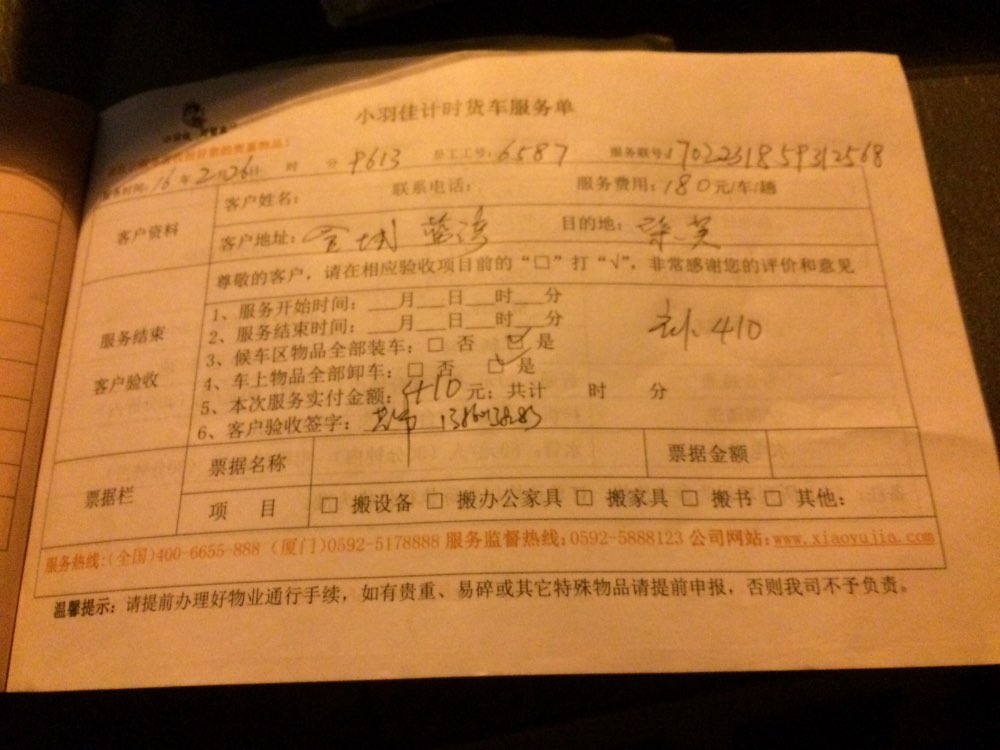 小羽佳计时货车服务单
服务时间: 16 年 2 月 26日 时 分 9613 员工工号: 6587 服务联号: 702231859312568
客户资料
客户姓名: 联系电话: 服务费用: 180元/车/趟
客户地址: 金域蓝湾 目的地:
服务结束
客户验收
尊敬的客户，请在相应验收项目前的“□”打“√”，非常感谢您的评价和意见
1、服务开始时间: ___月___日___时___分
2、服务结束时间: ___月___日___时___分
3、候车区物品全部装车: □ 否 ☑ 是
4、车上物品全部卸车: □ 否 ☑ 是
410
5、本次服务实付金额: 410 元; 共计 时 分
6、客户验收签字:
票据栏
票据名称 票据金额
项 目 □ 搬设备 □ 搬办公家具 □ 搬家具 □ 搬书 □ 其他:
服务热线:(全国)400-6655-888 (厦门)0592-5178888 服务监督热线:0592-5888123 公司网站:www.xiaoyujia.com
温馨提示: 请提前办理好物业通行手续，如有贵重、易碎或其它特殊物品请提前申报，否则我司不予负责。